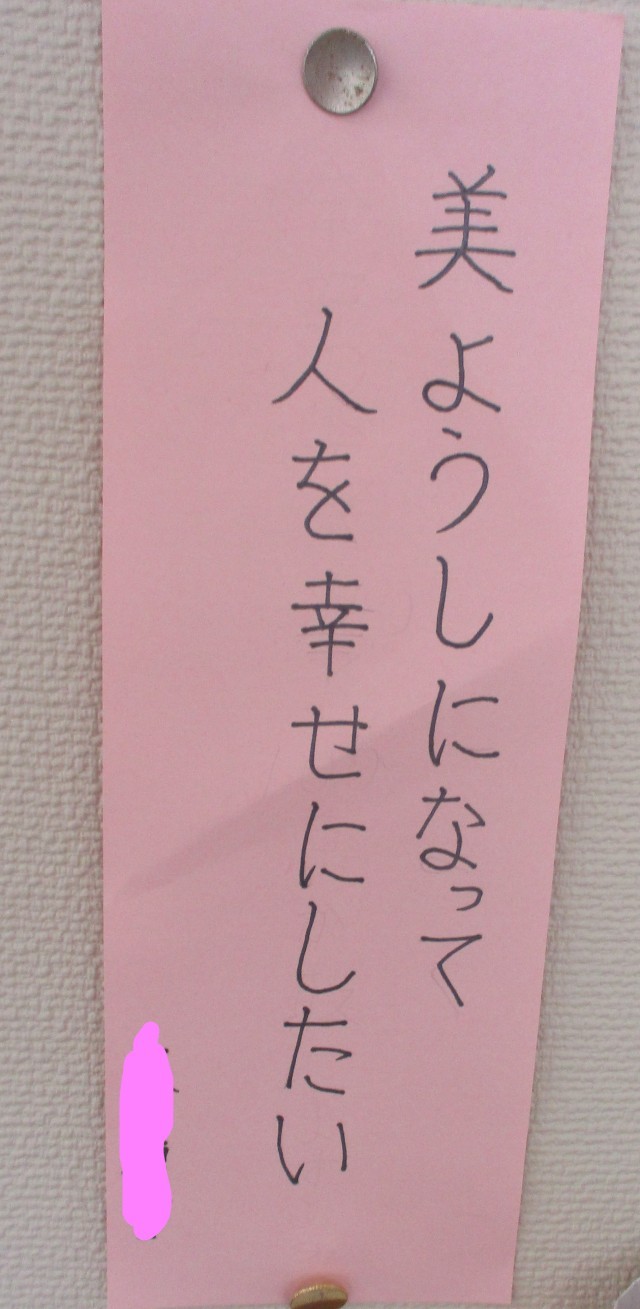 美ようしになって
人を幸せにしたい